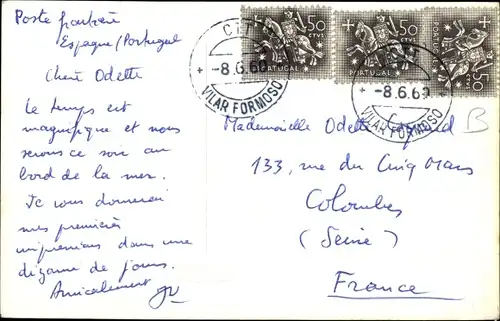 Poste frontière
Espagne/Portugal
Chère Odette
Le temps est
magnifique et nous
serons ce soir au
bord de la mer.
Je vous donnerai
mes premières
impressions dans une
dizaine de jours.
Amicalement
50
CTVS.
PORTUGAL
50
CTVS.
PORTUGAL
-8.6.60
VILAR FORMOSO
-8.6.60
VILAR FORMOSO
B
Mademoiselle Odette
133, rue du Cinq Mars
Colombes
(Seine)
France